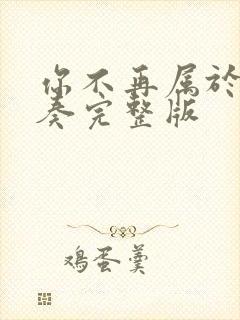 你不再属於
奏完整版
鸡蛋羹